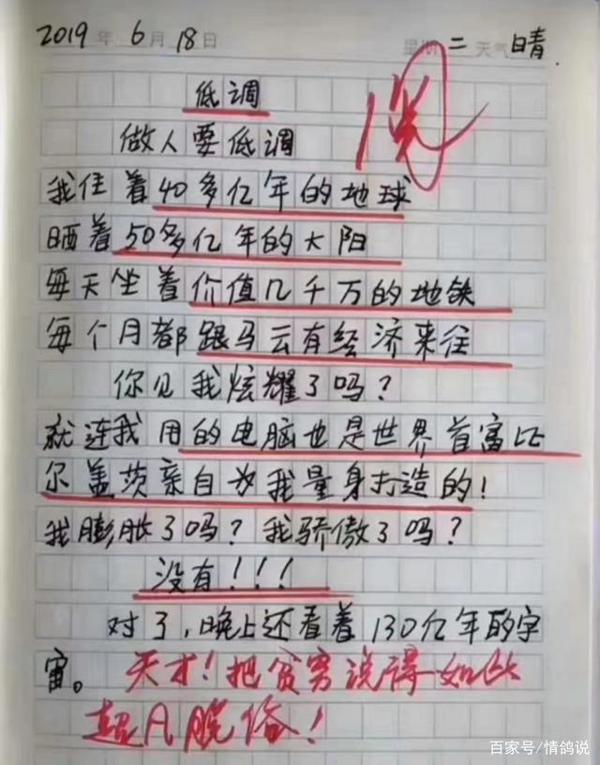 2019年 6月 18日 星期二 天气 晴
低调
做人要低调
我住着40多亿年的地球
晒着50多亿年的大阳
每天坐着价值几千万的地铁
每个月都跟马云有经济来往
你见我炫耀了吗？
就连我用的电脑也是世界首富比
尔盖茨亲自为我量身打造的！
我膨胀了吗？我骄傲了吗？
没有！！！
对了，晚上还看着130亿年的宇
宙。天才！把贫穷说得如此
超凡脱俗！
百家号/情鸽说